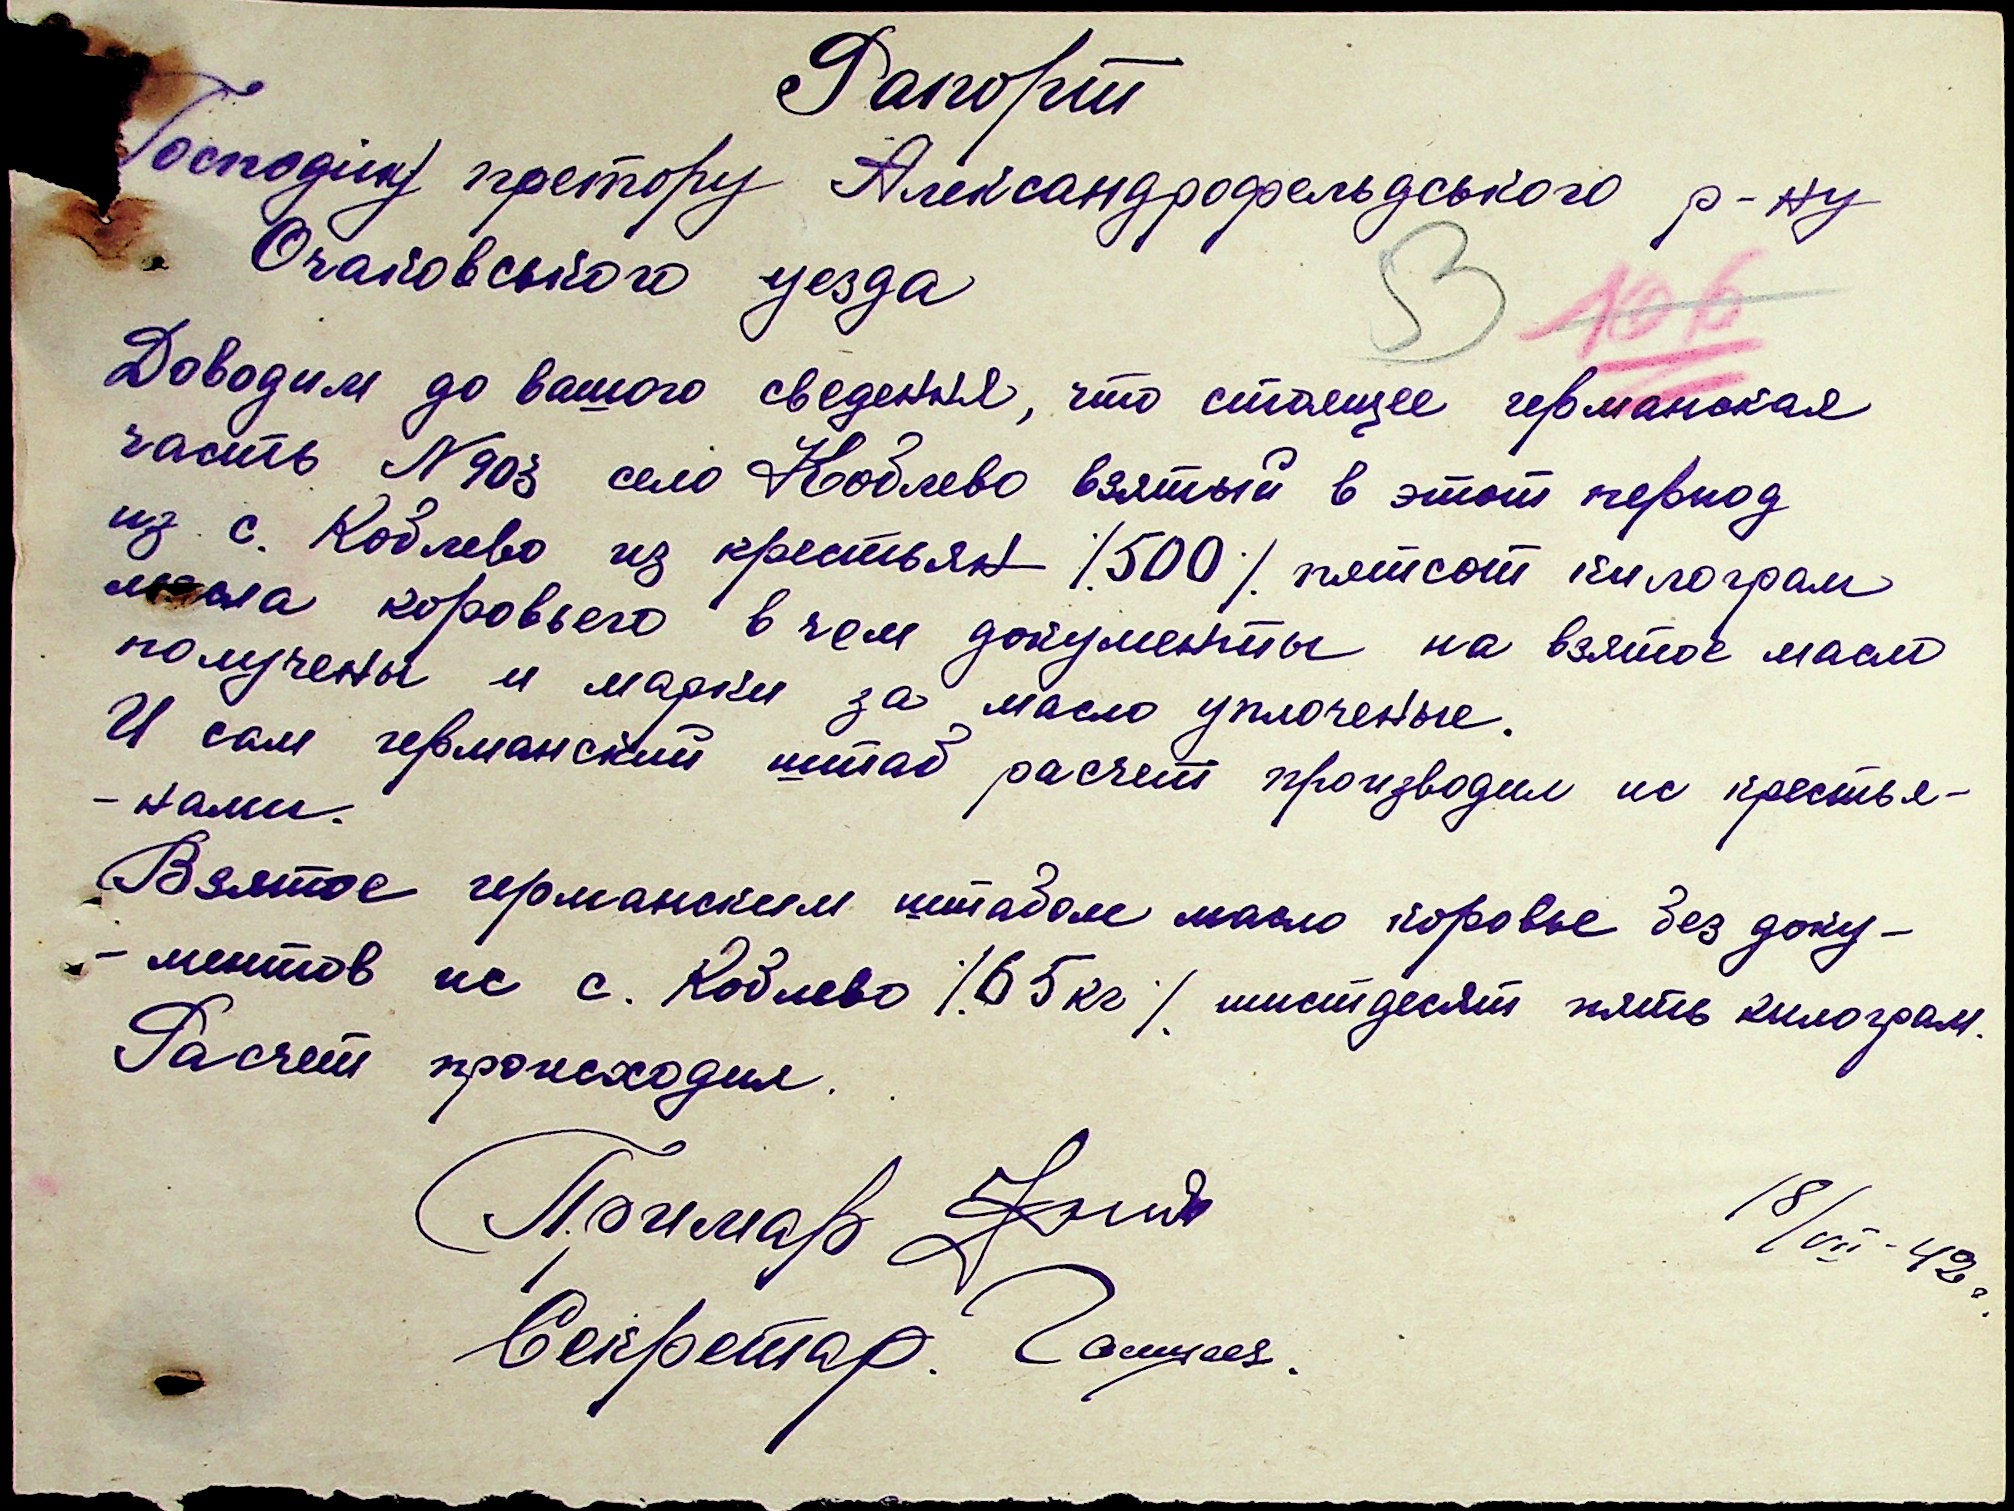 Рапорт
Господину претору Александрофельдського р-ну
Очаковського уезда
53 106
Доводим до вашого сведення, что стоящее германская
часть N 903 село Коблево взятый в этот период
из с. Коблево из крестьян /.500./. пятсот килограм
масла коровьего в чом документы на взятое масло
получены и марки за масло уплочение.
И сам германский штаб расчет производил ис крестья-
-нами.
Взятое германским штабом масло коровье без доку-
-ментов ис с. Коблево /.65кг./. шистдесят пять килограм.
Расчет происходил.
Примар
18/VII-42г.
Секретар.